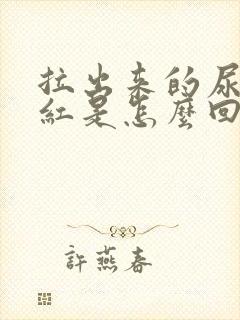 拉出来的尿
紅是怎麼回
許燕春